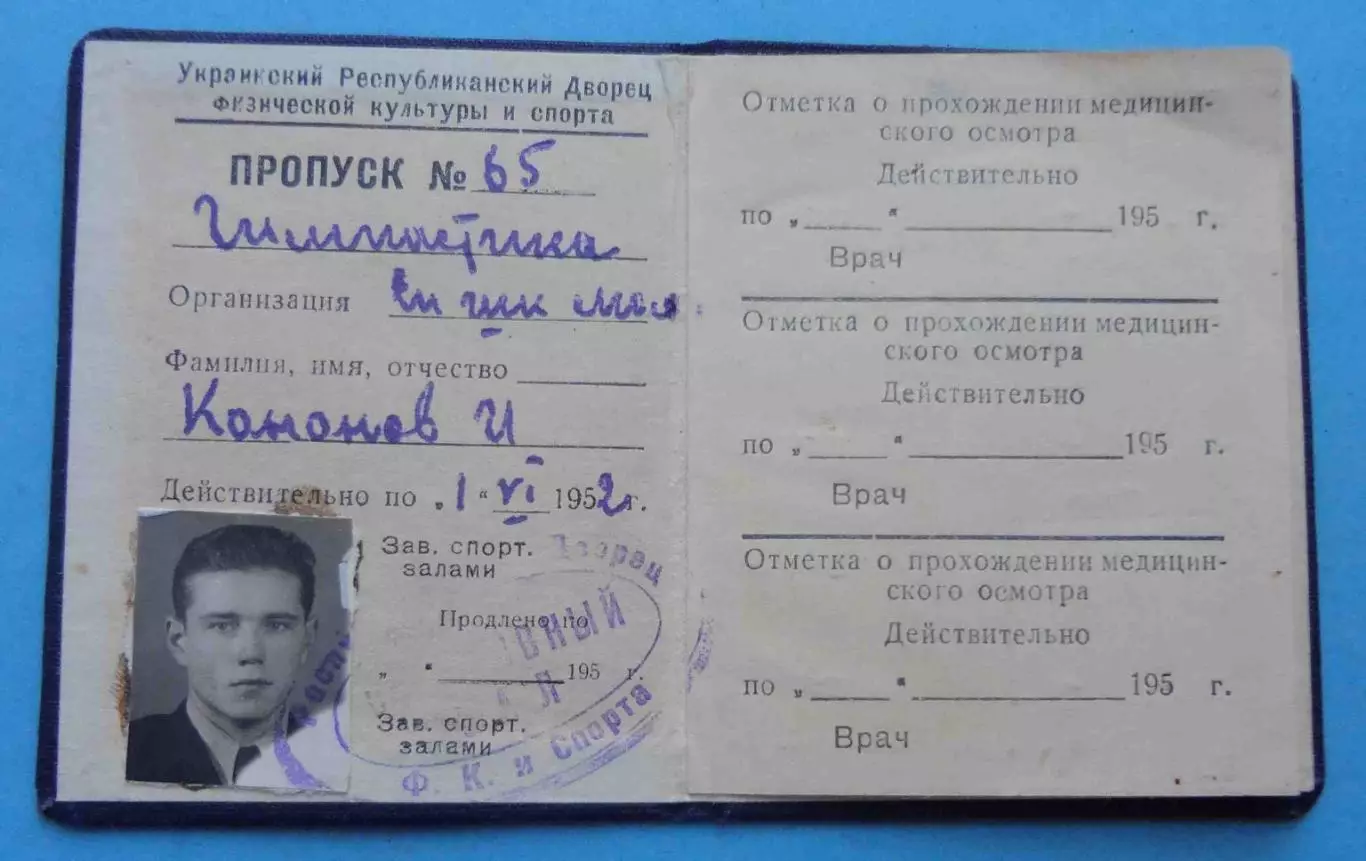 Украинский Республиканский Дворец
физической культуры и спорта
ПРОПУСК № 65
Гимнастика
Организация
Фамилия, имя, отчество
Кононов И
Действительно по „1“ VI 1952 г.
Зав. спорт.
залами
Продлено по
„ “ 195 г.
Зав. спорт.
залами
Дворец
Ф. К. и Спорта
Отметка о прохождении медицин-
ского осмотра
Действительно
по „ “ 195 г.
Врач
Отметка о прохождении медицин-
ского осмотра
Действительно
по „ “ 195 г.
Врач
Отметка о прохождении медицин-
ского осмотра
Действительно
по „ “ 195 г.
Врач